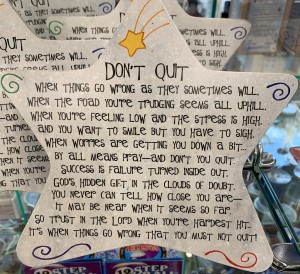 DON'T QUIT
WHEN THINGS GO WRONG AS THEY SOMETIMES WILL,
WHEN THE ROAD YOU'RE TRUDGING SEEMS ALL UPHILL,
WHEN YOU'RE FEELING LOW AND THE STRESS IS HIGH,
AND YOU WANT TO SMILE BUT YOU HAVE TO SIGH,
WHEN WORRIES ARE GETTING YOU DOWN A BIT...
BY ALL MEANS PRAY—AND DON'T YOU QUIT.
SUCCESS IS FAILURE TURNED INSIDE OUT,
GOD'S HIDDEN GIFT IN THE CLOUDS OF DOUBT.
YOU NEVER CAN TELL HOW CLOSE YOU ARE—
IT MAY BE NEAR WHEN IT SEEMS SO FAR.
SO TRUST IN THE LORD WHEN YOU'RE HARDEST HIT.
IT'S WHEN THINGS GO WRONG THAT YOU MUST NOT QUIT!
QUIT
AS THEY SOMETIMES WILL,
12 STEP